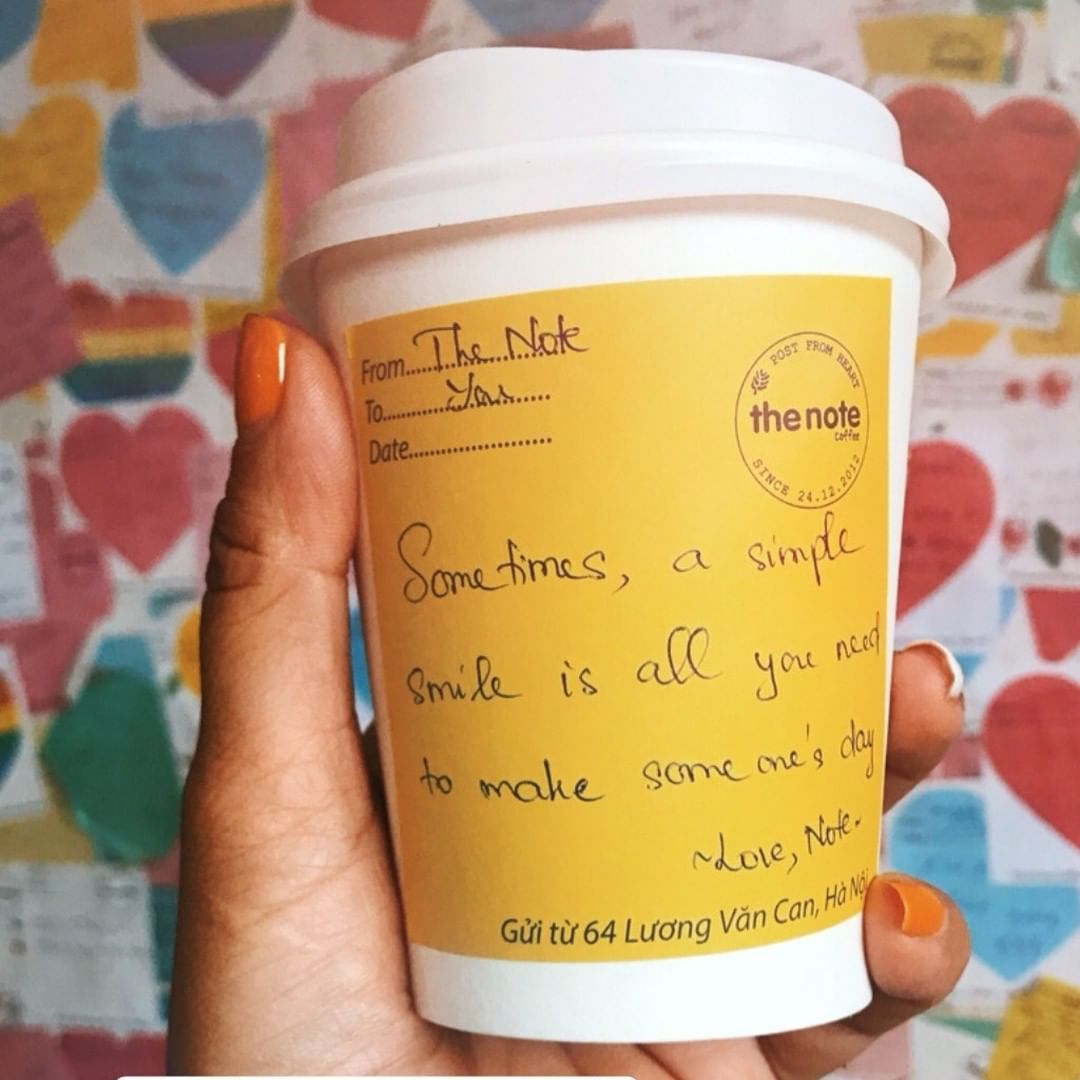 From......The Note
To......You......
Date......................
POST FROM HEART
the note
coffee
SINCE 24.12.2012
Sometimes, a simple
smile is all you need
to make someone's day
~Love, Note.
Gửi từ 64 Lương Văn Can, Hà Nội